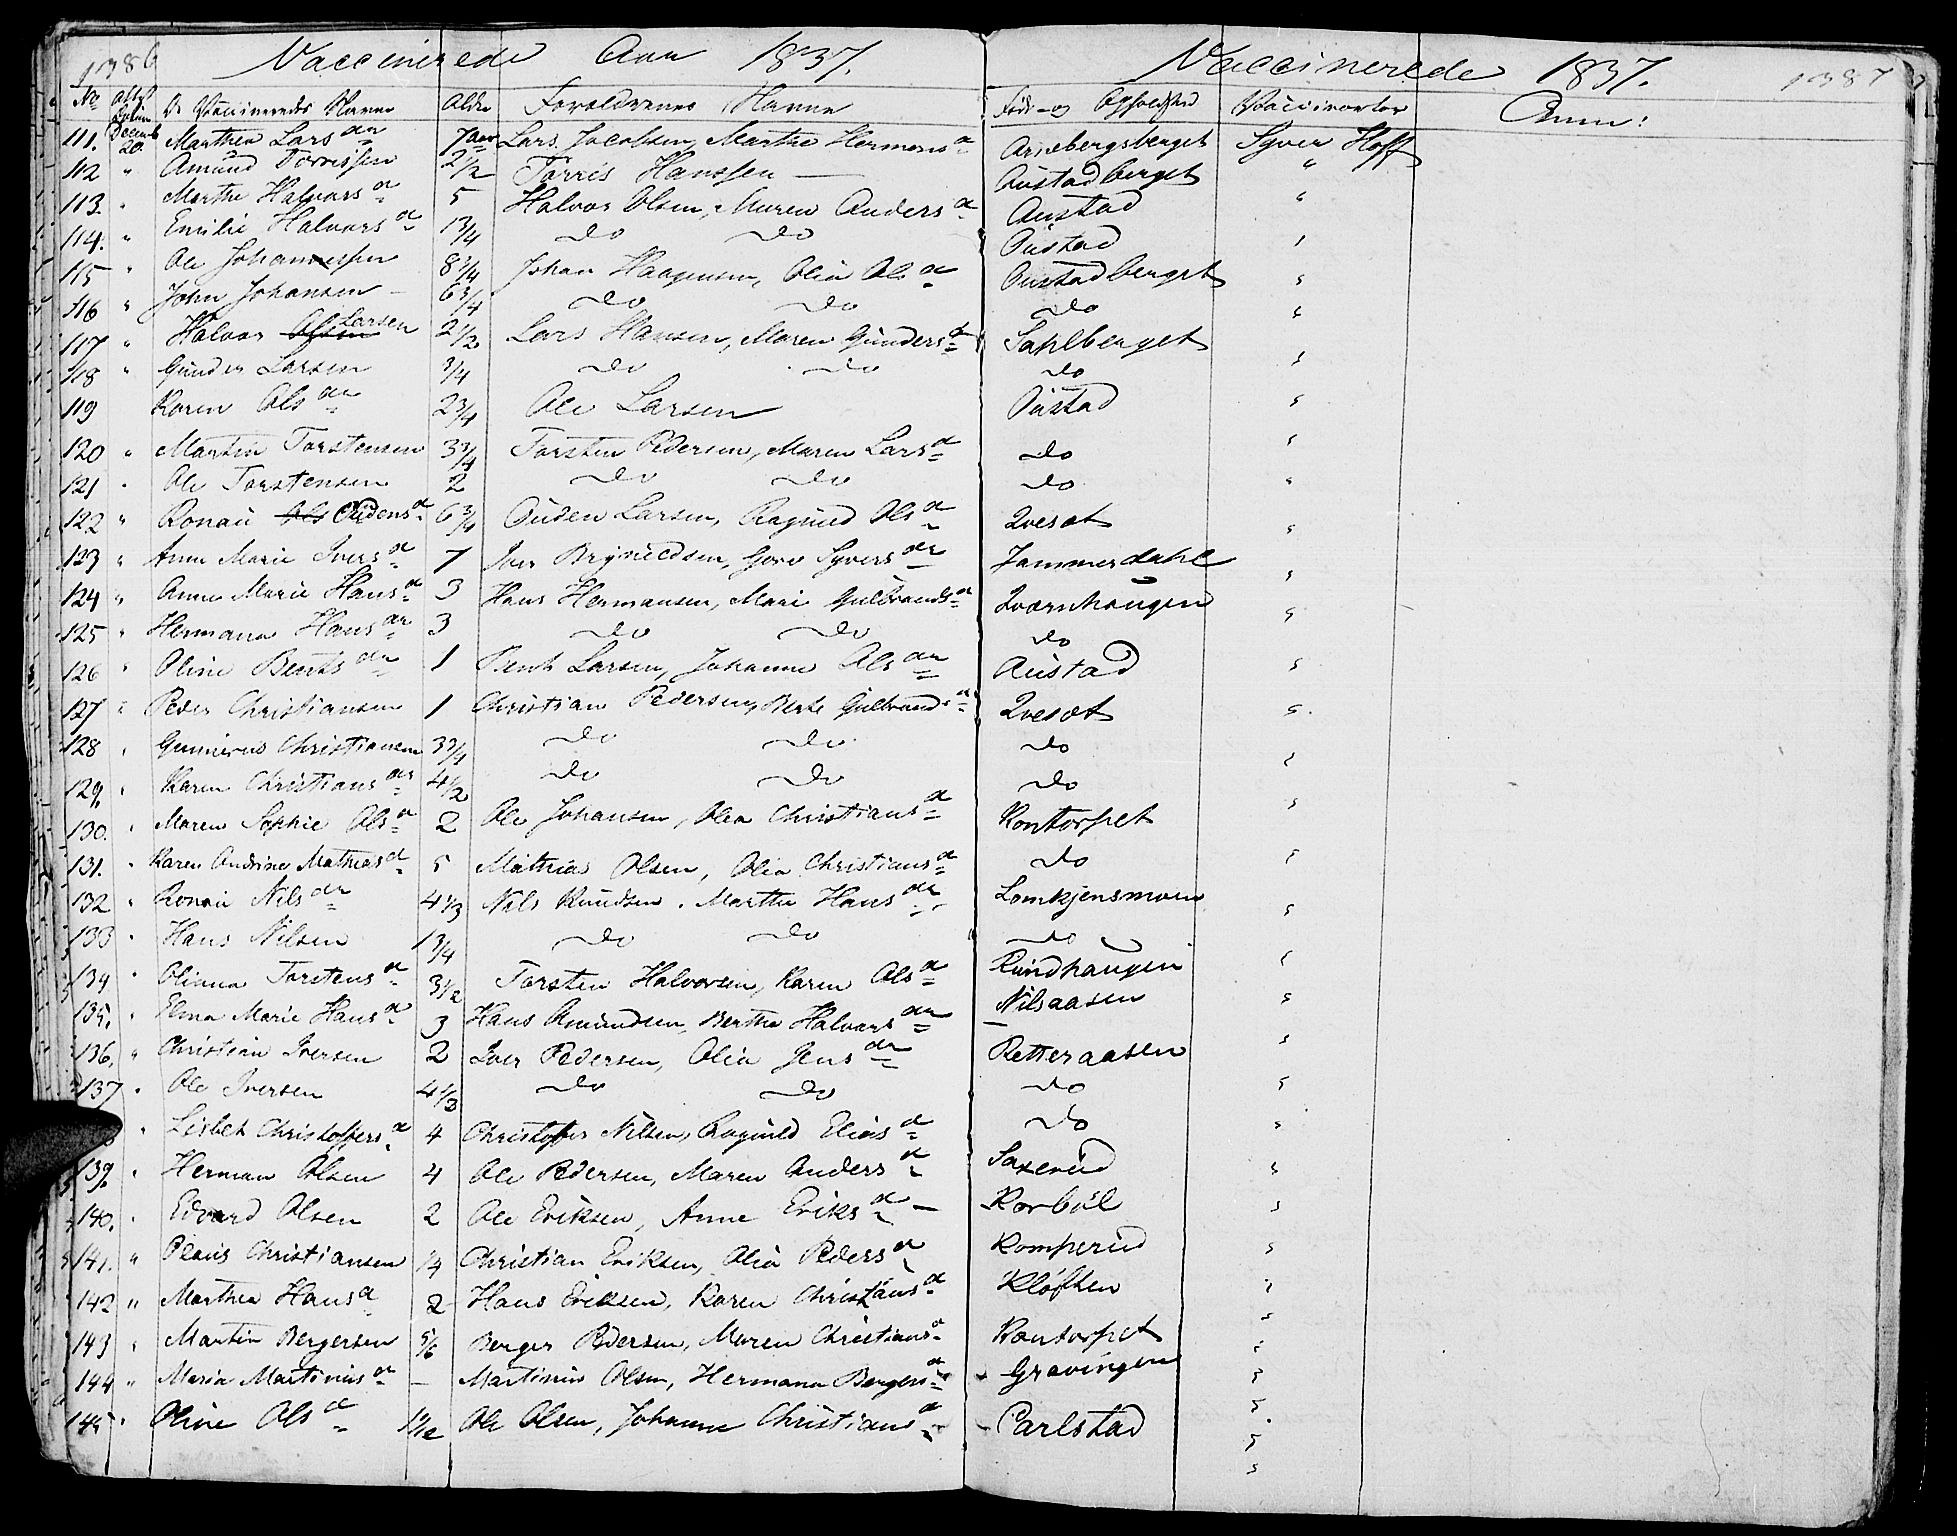 1386 Vaccinerede Ann 1837. Vaccinerede 1837. 1387
No De Vaccineredes Navne Alder Forældrenes Navne Føde- og Opholdsted Vaccinator Anm:
111. Decemb 20. Marthea Lars dr 7 aar Lars Jacobsen, Marthe Hermens d Arnebergsberget Syver Hoff
112 " Amund Torrissen 2 1/2 Torris Hanssen — Austadberget "
113. " Marthe Halvors d 5 Halvor Olsen, Maren Anders d Austad "
114. " Emilie Halvors d 1 3/4 do do Austad "
115 " Ole Johannessen 8 1/4 Johan Haagensen, Olia Ols d Austadberget "
116 " John Johansen — 6 3/4 do do do "
117 " Halvor Olsen Larsen 2 1/2 Lars Hansen, Maren Gunders d Sahlberget "
118 " Gunder Larsen 3/4 do do do "
119 Karen Ols dr 2 3/4 Ole Larsen Austad "
120 " Martin Torstensen 3 3/4 Torsten Pedersen, Maren Lars d do "
121 " Ole Torstensen 2 do do do "
122 " Ronau Ols Oudens d 6 3/4 Ouden Larsen, Ragnild Ols d Qvesæt "
123 " Anne Marie Ivers d 7 Iver Brynildsen, Goro Syvers dr Jammerdahl "
124 " Anne Marie Hans d 3 Hans Hermansen, Mari Gulbrands d Qværnhaugen "
125 " Hermana Hans dr 3 do do do "
126 " Oline Bents dr 1 Bent Larsen, Johanne Ols dr Austad "
127 " Peder Christiansen 1 Christian Pedersen, Berte Gulbrands d Qvesæt "
128 " Gunnerus Christiansen 3 3/4 do do do "
129. " Karen Christians dr 4 1/2 do do do "
130. " Maren Sophie Ols d 2 Ole Johansen, Olea Christians d Kontorpet "
131. " Karen Andrine Mathias d 5 Mathias Olsen, Olia Christians d do "
132 " Ronau Nils dr 4 1/3 Nils Knudsen, Marthe Hans dr Lomkjensmoen "
133 " Hans Nilsen 1 3/4 do do do "
134 " Olianna Torstens d 3 1/2 Torsten Halvorsen, Karen Ols d Rundhaugen "
135. " Elina Marie Hans d 3 Hans Amundsen, Berthe Halvors dr Nilsaasen "
136. " Christian Iversen 2 Iver Pedersen, Olia Jens dr Retteraasen "
137 " Ole Iversen 4 1/3 do do do "
" Lisbet Christoffers d 4 Christoffer Nilsen, Ragnild Elias d do "
139. " Herman Olsen 4 Ole Pedersen, Maren Anders d Saxerud "
140. " Edvard Olsen 2 Ole Eriksen, Anne Eriks d — Korbøl "
141. " Christiansen 1/4 Christian Eriksen, Olia Peders d Komperud "
142 " Marthea Hans d 2 Hans Eriksen, Karen Christians d Kløften "
143 " Martin Bergersen 5/6 Berger Pedersen, Maren Christians d Kontorpet "
144 " Maria Martinius d — Martinius Olsen, Hermana Bergers d Gravingen "
145 " Oline Ols d Ole Olsen, Johanne Christians d Carlstad "